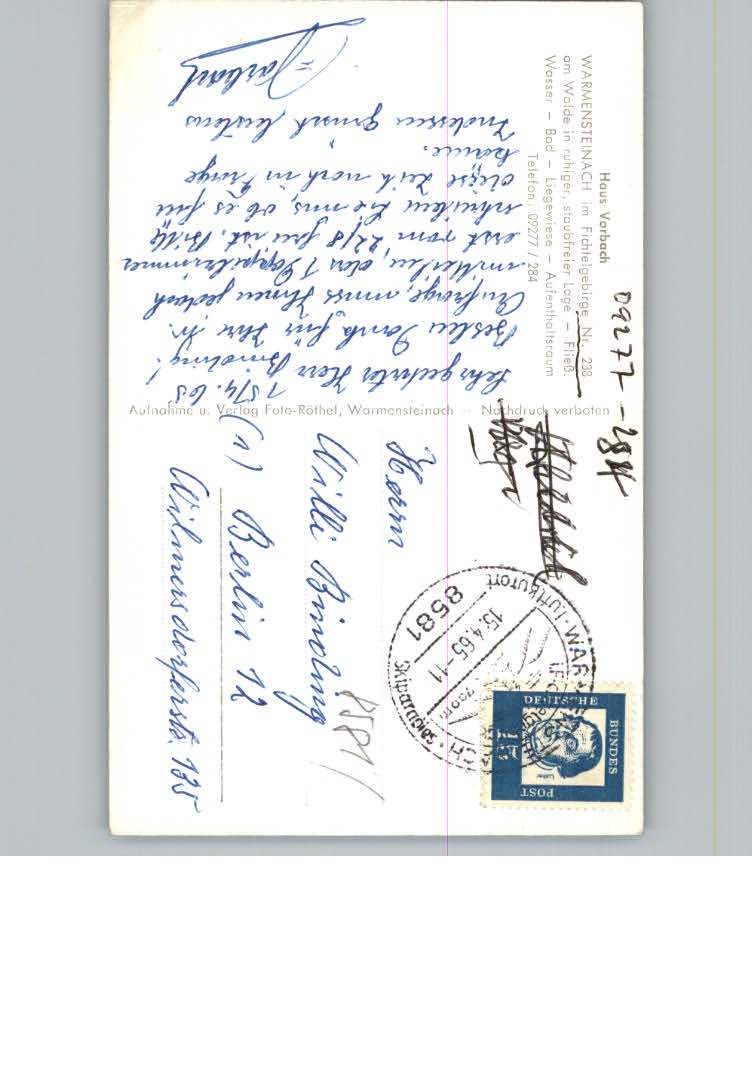 Haus Vorbach
WARMENSTEINACH im Fichtelgebirge Nr. 238
am Walde in ruhiger, staubfreier Lage – Fließ.
Wasser – Bad – Liegewiese – Aufenthaltsraum
Telefon: 09277 / 284
09277 - 284
15/4. 65
Sehr geehrter Herr Binding!
Besten Dank für Ihre
Anfrage, muss Ihnen jedoch
mitteilen, das 1 Doppelzimmer
erst vom 22/8 frei ist. Bitte
schreiben Sie uns, ob es für
diese Zeit noch in Frage
käme.
Indessen grüsst bestens
Vorbach
Aufnahme u. Verlag Foto-Röthel, Warmensteinach – Nachdruck verboten
Herrn
Willi Binding
(1) Berlin 12
Wilmersdorferstr. 135
8581
8581
15.4.65-11
Luftkurort
Skiparadies
DEUTSCHE
BUNDES
POST
15
Luther